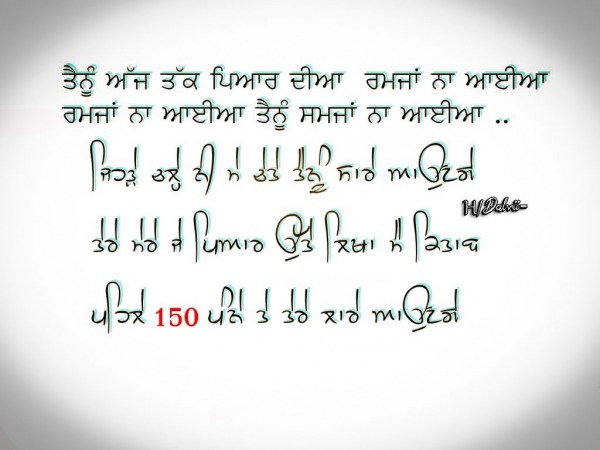 ਤੈਨੂੰ ਅੱਜ ਤੱਕ ਪਿਆਰ ਦੀਆ ਰਮਜਾਂ ਨਾ ਆਈਆ
ਰਮਜਾਂ ਨਾ ਆਈਆ ਤੈਨੂੰ ਸਮਜਾਂ ਨਾ ਆਈਆ ..
ਜਿਹੜੇ ਨੀ ਮੇ ਚੇਤੇ ਤੈਨੂੰ ਸਾਰੇ ਆਉਣਗੇ
ਤੇਰੇ ਮੇਰੇ ਜੇ ਪਿਆਰ ਉੱਤੇ ਲਿਖਾ ਮੈ ਕਿਤਾਬ
ਪਹਿਲੇ 150 ਪੰਨੇ ਤੇ ਤੇਰੇ ਲਾਰੇ ਆਉਣਗੇ